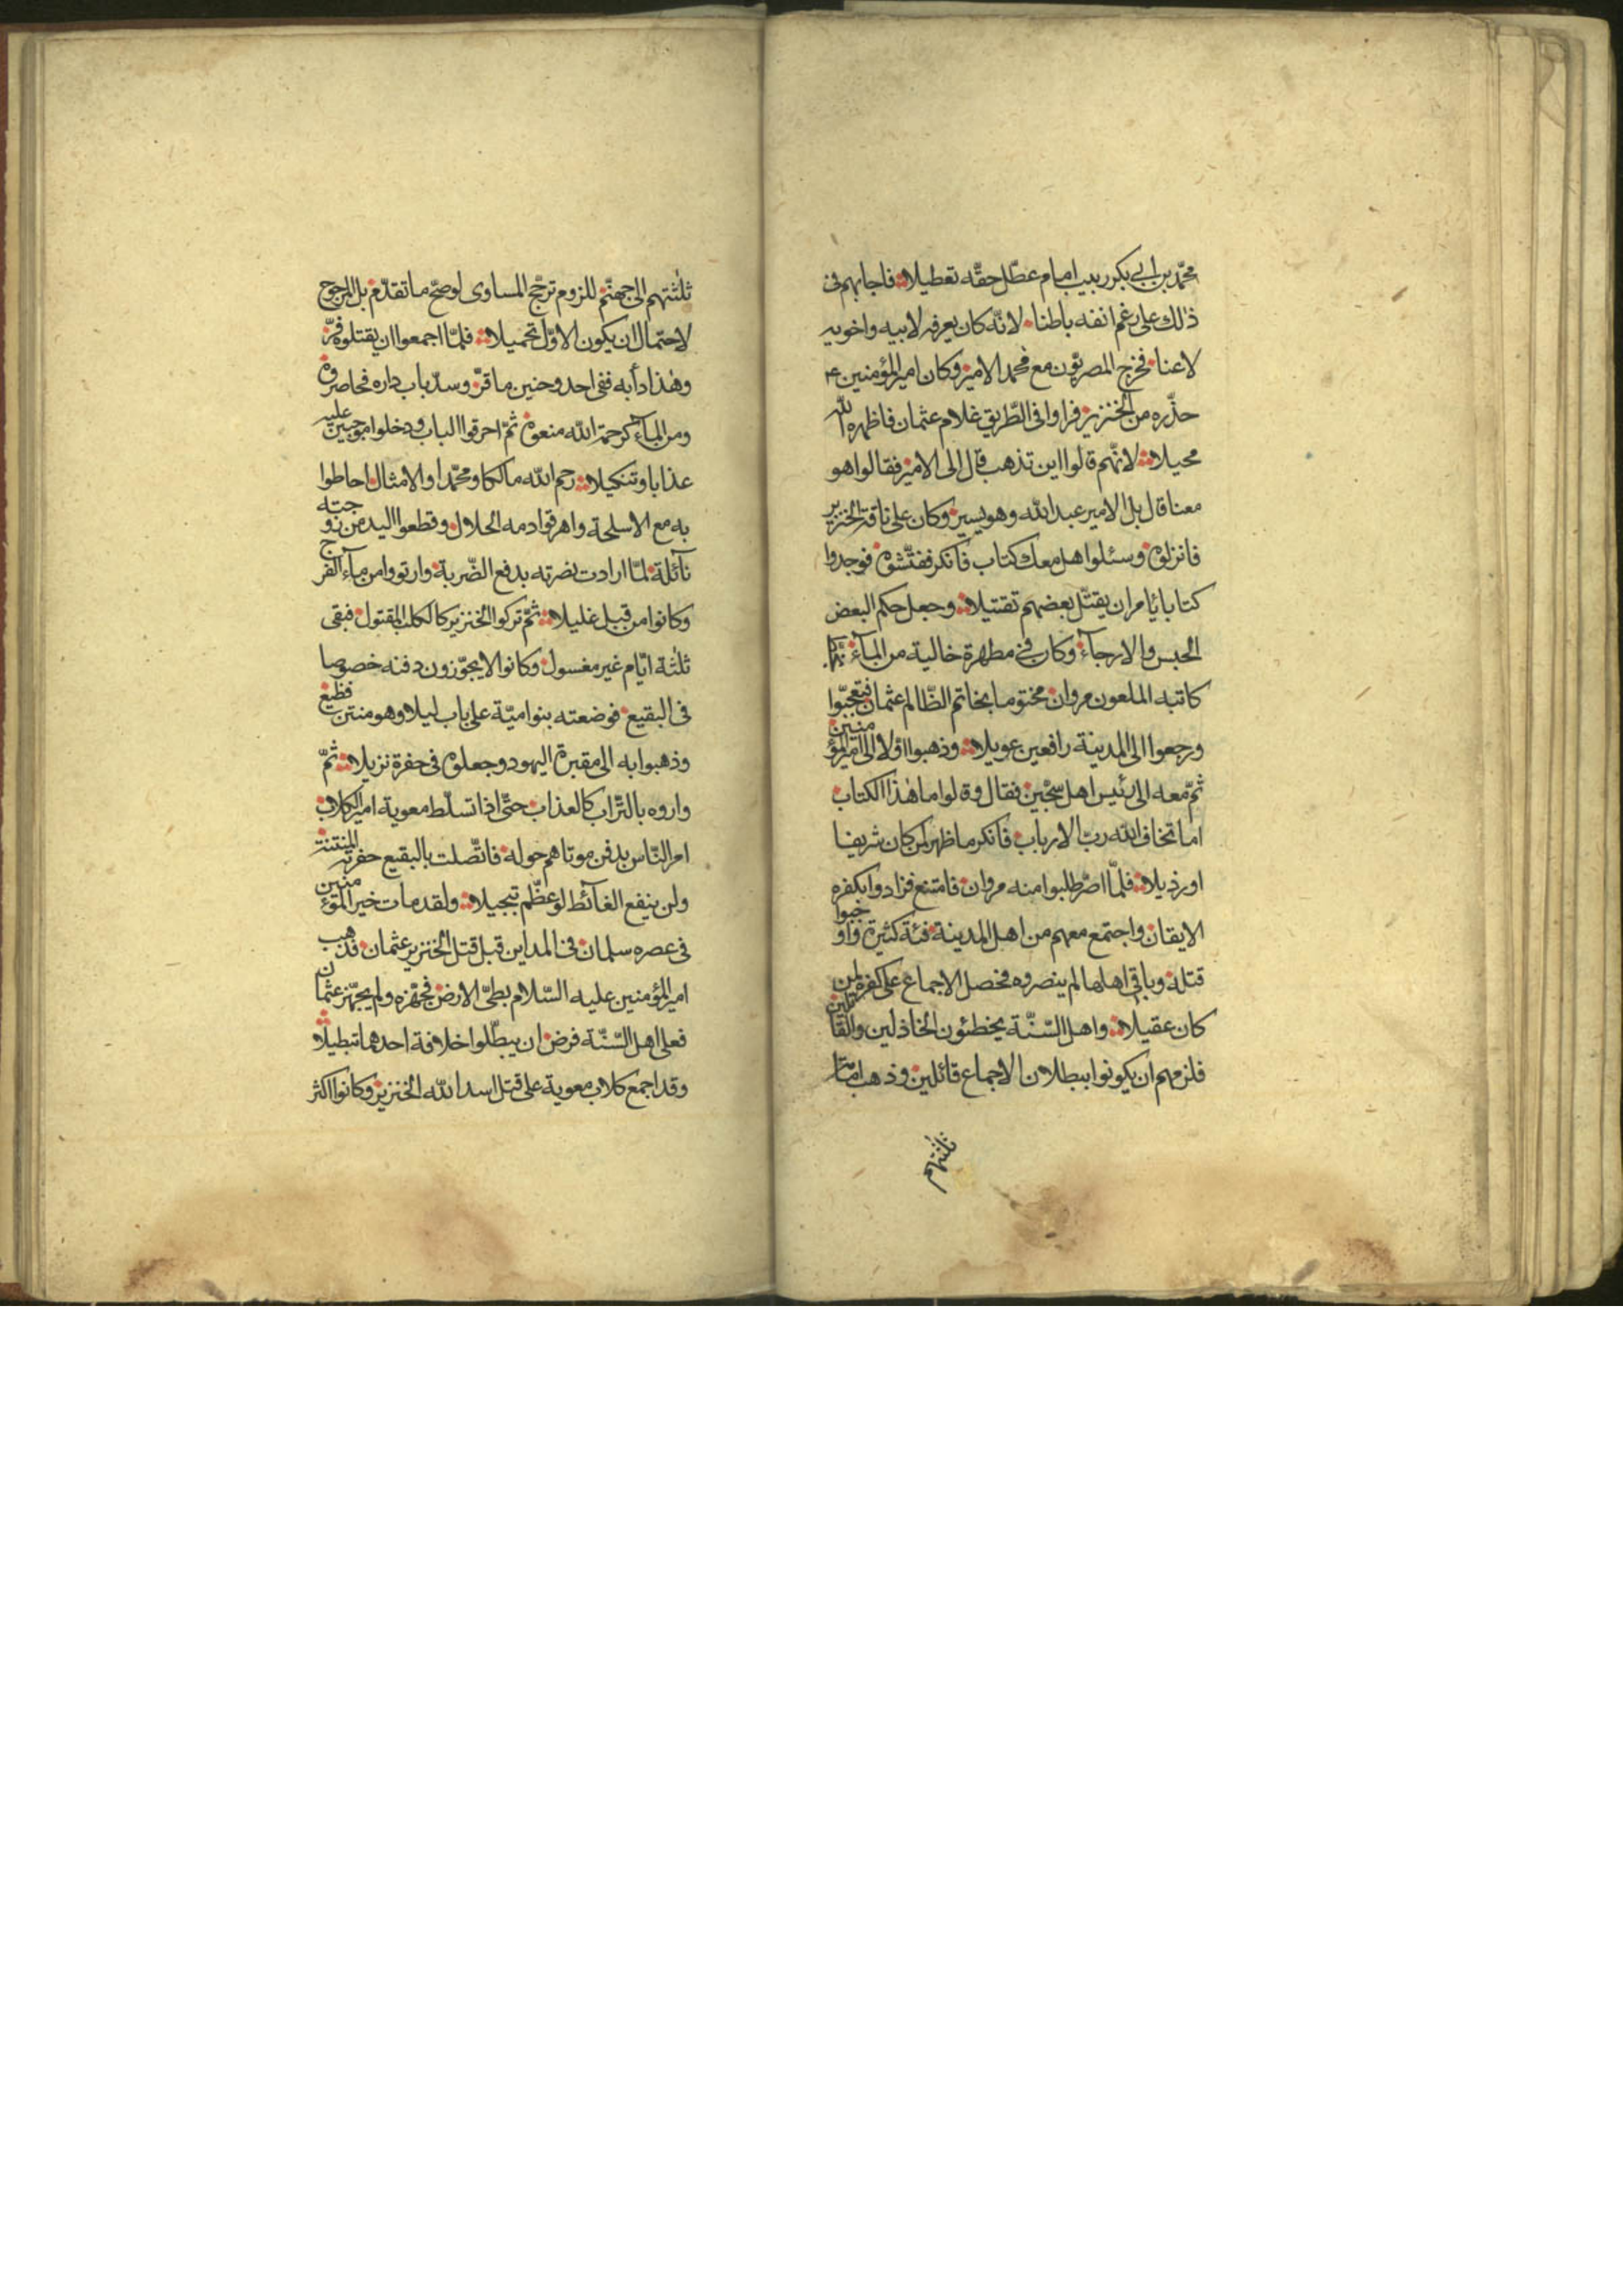 محمّد بن ابي بكر ربيب امام عطّل حقّه تعطيلا فاجابهم فى
ذلك على رغم انفه باطنا لانّه كان يعرفه لابيه واخويه
لاعنا فخرج المصريّون مع محمد الامير وكان امير المؤمنين ع
حذّره من الخنزير فراوا فى الطّريق غلام عثمان فاظهره الله
محيلا لانّهم قالوا اين تذهب قال الى الامير فقالوا هو
معنا قال بل الامير عبد الله وهو يسير وكان على ناقة الخنزير
فانزلوه وسئلوا هل معك كتاب فانكر ففتّشوه فوجدوا
كتابا يامر ان يقتّل بعضهم تقتيلا وجعل حكم البعض
الحبس والارجآء وكان فى مطهرة خالية من المآء
كاتبه الملعون مروان مختوما بخاتم الظّالم عثمان فتعجّبوا
ورجعوا الى المدينة رافعين عويلا وذهبوا اوّلا الى امير المؤمنين
ثمّ معه الى رئيس اهل سجّين فقال وقالوا ما هذا الكتاب
اما تخاف الله ربّ الارباب فانكر ما ظهر لمن كان شريفا
او رذيلا فلمّا اصرّ طلبوا منه مروان فامتنع فزادوا بكفره
الايقان واجتمع معهم من اهل المدينة فئة كثيرة واوجبوا
قتله وباقى اهلها لم ينصروه فحصل الاجماع على كفره لمن
كان عقيلا واهل السّنّة يخطئون الخاذلين والقاتلين
فلزمهم ان يكونوا ببطلان الاجماع قائلين وذهب امّا
ثلثتهم
ثلثتهم الى جهنّم للزوم ترجّح المساوى لوصحّ ما تقدّم بل المرجوح
لاحتمال ان يكون الاوّل تحميلا فلمّا اجمعوا ان يقتلوه فرّ
وهذا دأبه ففى احد وحنين ما قرّ وسدّ باب داره فحاصروه
ومن المآء كرحمة الله منعوه ثمّ احرقوا الباب ودخلوا موجبين عليه
عذابا وتنكيلا رحم الله مالكا ومحمّدا والامثال احاطوا
به مع الاسلحة واهرقوا دمه الحلال وقطعوا اليد من زوجته
نآئلة لمّا ارادت نصرته بدفع الضّربة وارتووا من مآء الفرج
وكانوا من قبل غليلا ثمّ تركوا الخنزير كالكلب المقتول فبقى
ثلثة ايّام غير مغسول وكانوا لا يجوّزون دفنه خصوصا
فى البقيع فوضعته بنو اميّة على باب ليلا وهو منتن فظيع
وذهبوا به الى مقبرة اليهود وجعلوه فى حفرة نزيلا ثمّ
واروه بالتّراب كالعذاب حتّى اذا تسلّط معوية امير الكلاب
امر النّاس بدفن موتاهم حوله فاتّصلت بالبقيع حفرته المنتنة
ولن ينفع الغآئط لو عظّم تبجيلا ولقد مات خير المؤمنين
فى عصره سلمان فى المداين قبل قتل الخنزير عثمان فذهب
امير المؤمنين عليه السّلام بطىّ الارض فجهّزه ولم يجهّز عثمان
فعلى اهل السّنّة فرض ان يبطّلوا خلافة احدهما تبطيلا
وقد اجمع كلاب معوية على قتل اسد الله الخنزير وكانوا اكثر